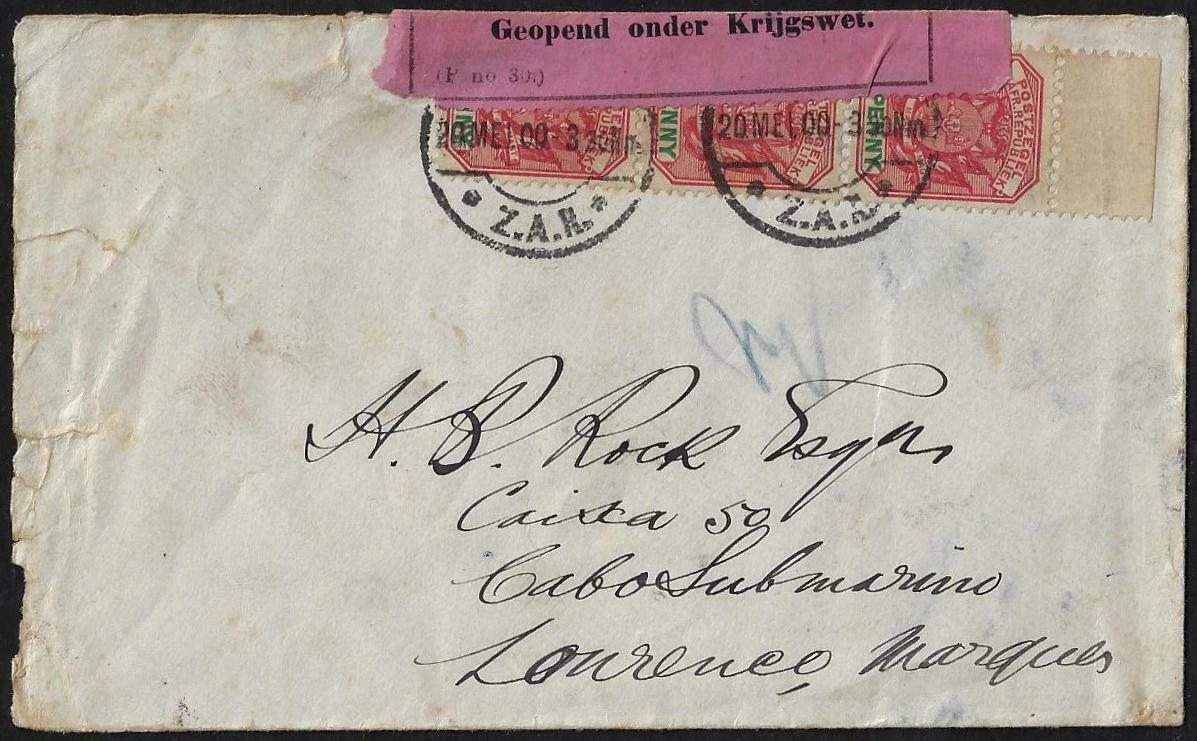 Geopend onder Krijgswet.
(P no 30.)
PENNY
POSTZEGEL
AFR. REPUBLIEK.
20 MEI.00-3 30Nm
20 MEI.00-3 30Nm
* Z.A.R. *
* Z.A.R. *
H. B. Rock Esqr.
Caixa 50
Cabo Submarino
Lourenço Marques